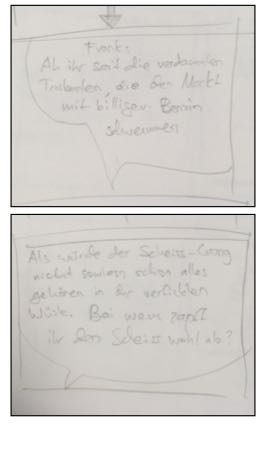 Frank:
Ah ihr seit die verdammten
die den Markt
mit billigen Benzin
schwemmen
Als würde der Scheiss-Gang
nicht sowieso schon alles
gehören in der verfickten
Wüste. Bei wem zapft
ihr den Scheiss wohl ab?